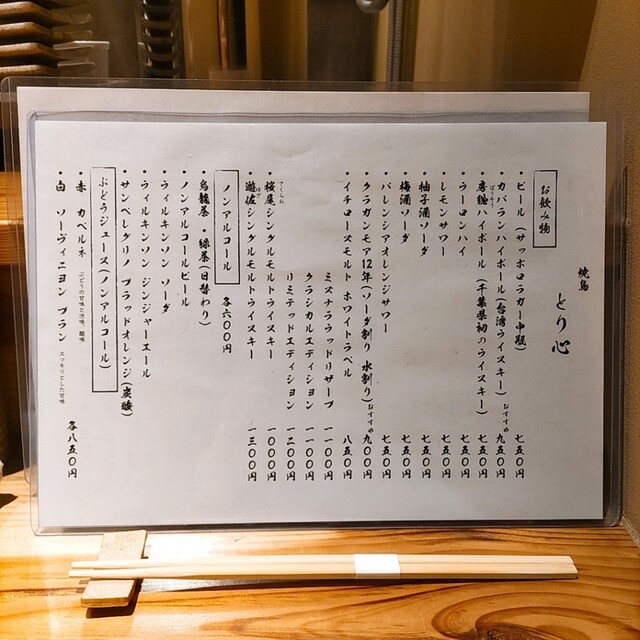 焼鳥 とり心
お飲み物
・ビール(サッポロラガー中瓶) 七五〇円
・カバランハイボール(台湾ウイスキー)おすすめ 九五〇円
・房総ハイボール(千葉県初のウイスキー) 七五〇円
ぼうそう
・ウーロンハイ 七五〇円
・レモンサワー 七五〇円
・柚子酒ソーダ 七五〇円
・梅酒ソーダ 七五〇円
・バレンシアオレンジサワー 七五〇円
・クラガンモア12年(ソーダ割り 水割り)おすすめ 九〇〇円
・イチローズモルト ホワイトラベル 八五〇円
ミズナラウッドリザーブ 一一〇〇円
クラシカルエディション 一一〇〇円
リミテッドエディション 一二〇〇円
・桜尾シングルモルトウイスキー 一〇〇〇円
さくらお
・遊佐シングルモルトウイスキー 一三〇〇円
ゆざ
ノンアルコール 各六〇〇円
・烏龍茶 ・緑茶(日替わり)
・ノンアルコールビール
・ウィルキンソン ソーダ
・ウィルキンソン ジンジャーエール
・サンペレグリノ ブラッドオレンジ(炭酸)
ぶどうジュース(ノンアルコール)
・赤 カベルネ ぶどうの甘味と渋味、酸味
・白 ソーヴィニヨン ブラン スッキリとした甘味 各八五〇円